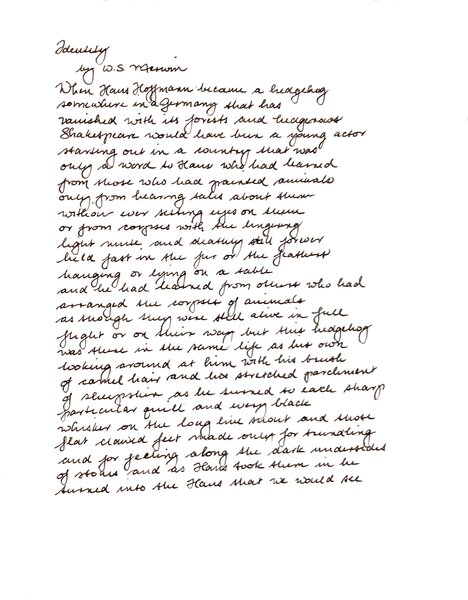 Identity
by W.S. Merwin
When Hans Hoffmann became a hedgehog
somewhere in a Germany that has
vanished with its forests and hedgerows
Shakespeare would have been a young actor
starting out in a country that was
only a word to Hans who had learned
from those who had painted animals
only from hearing tales about them
without ever setting eyes on them
or from corpses with the lingering
light mute and deathly still forever
held fast in the fur or the feathers
hanging or lying on a table
and he had learned from others who had
arranged the corpses of animals
as though they were still alive in full
flight or on their way but this hedgehog
was there in the same life as his own
looking around at him with his brush
of camel hair and his stretched parchment
of sheepskin as he turned to each sharp
particular quill and every black
whisker on the long live snout and those
flat clawed feet made only for trundling
and for feeling along the dark undersides
of stones and as Hans took them in he
turned into the Hans that we would see